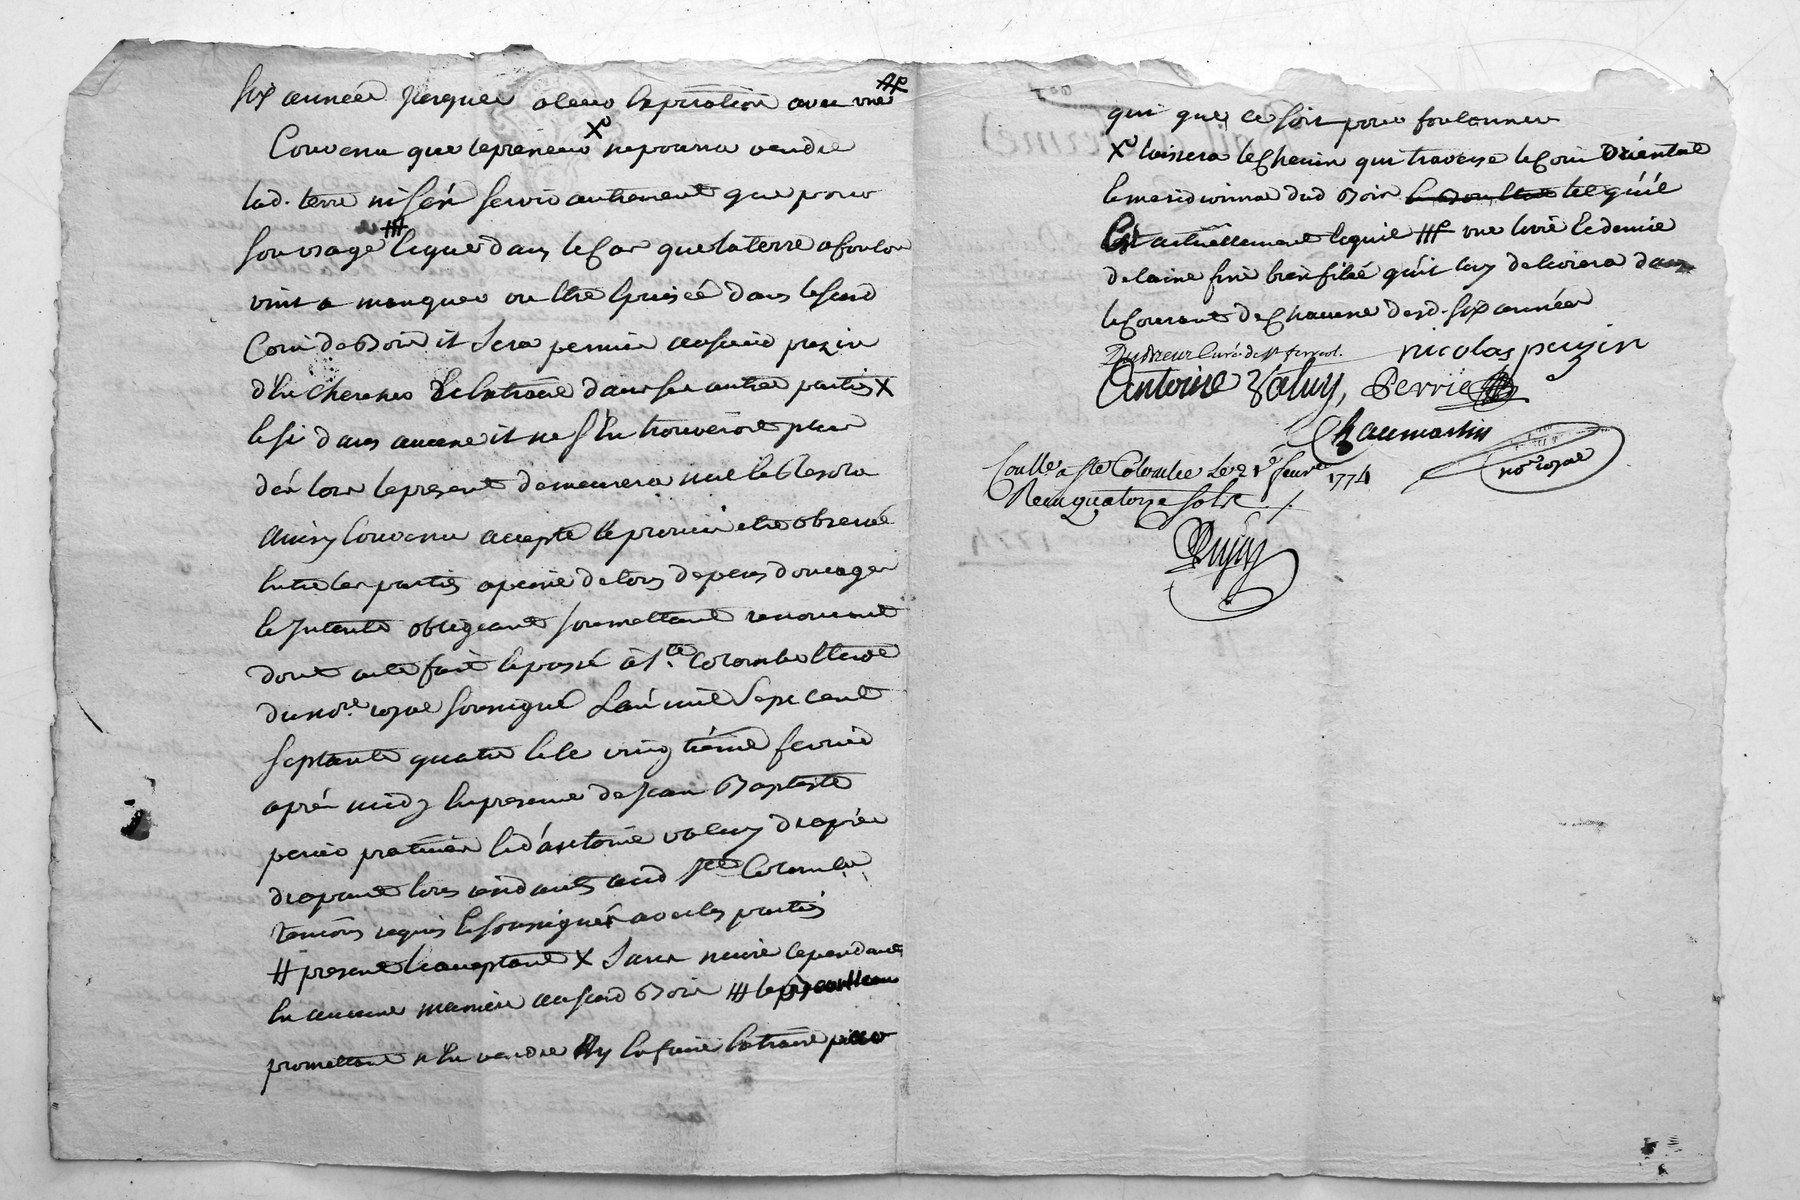 six années jusques a leur Expiration avec une #
Convenu que le preneur X ne pourra vendre
lad. terre ni s'en servir autrement que pour
son usage ### Et que dans le Cas que la terre a foulon
vint a manquer ou Etre Epuisée dans le susd
Coin de Bois il sera permis ausieur puzin
d'En chercher & Extraire dans les autres parties X
Et si dans aucune il ne s'En trouvoient plus
dès lors le present demeurera nul Et Resolu
Ainsy Convenu accepté Et promis etre observé
Entre les parties a peine de tous depens domages
Et Interets obligeant soumettant renonceant
dont acte fait Et passé à Ste. Colombe Etude
du nore. royal soussigné L'an mil sept cent
septante quatre Et le vingtième fevrier
après midy En presence de Jean Baptiste
perrier praticien Et d'antoine valuy drapier
drapant tous residants aud Ste Colombe
temoins requis Et soussignés avec les parties
# present Et acceptant X sans nuire cependant
En aucune maniere au susd Bois ###
promettant n'En vendre ny En faire Extraire pour
qui que ce soit pour foulonner
X laissera le Chemin qui traverse le Coin Oriental
Et meridional dud Bois tel qu'il
Est actuellement ### une livre Et demie
de laine fine bien filée qu'il luy delivrera dans
le Courant de Chacune desd. six années
Curé de st ferreol. nicolas puzin
Antoine Valuy, Perrier
Chaumartin
nore royal
Conllé a Ste Colombe Le 21e fevrier 1774
Recu quatorze sols ./.